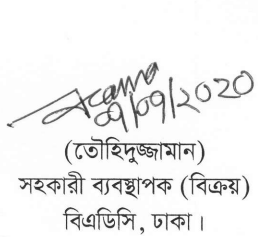 09/09/2020
(তৌহিদুজ্জামান)
সহকারী ব্যবস্থাপক (বিক্রয়)
বিএডিসি, ঢাকা।